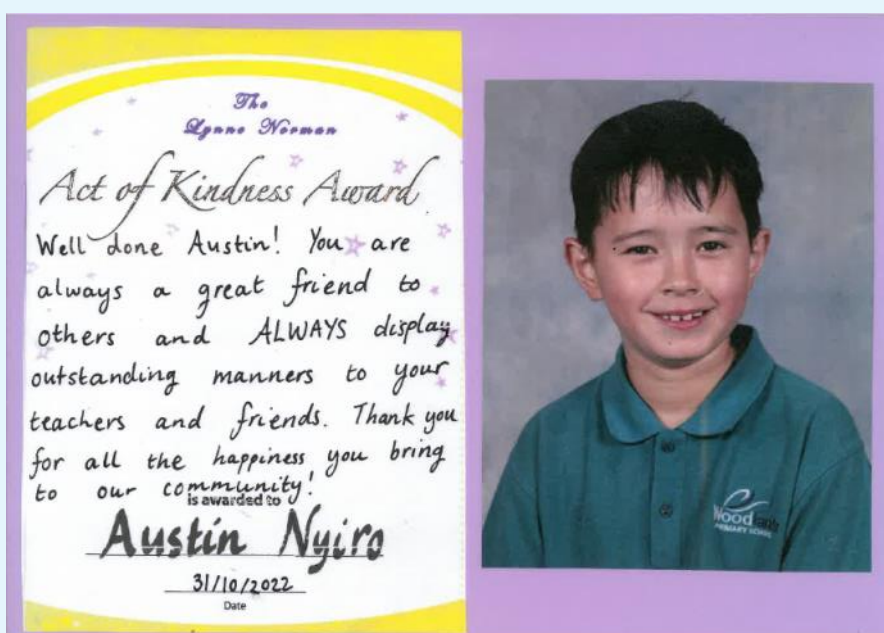 The
Lynne Norman
Act of Kindness Award
Well done Austin! You are
always a great friend to
others and ALWAYS display
outstanding manners to your
teachers and friends. Thank you
for all the happiness you bring
to our community!
is awarded to
Austin Nyiro
31/10/2022
Date
PRIMARY SCHOOL